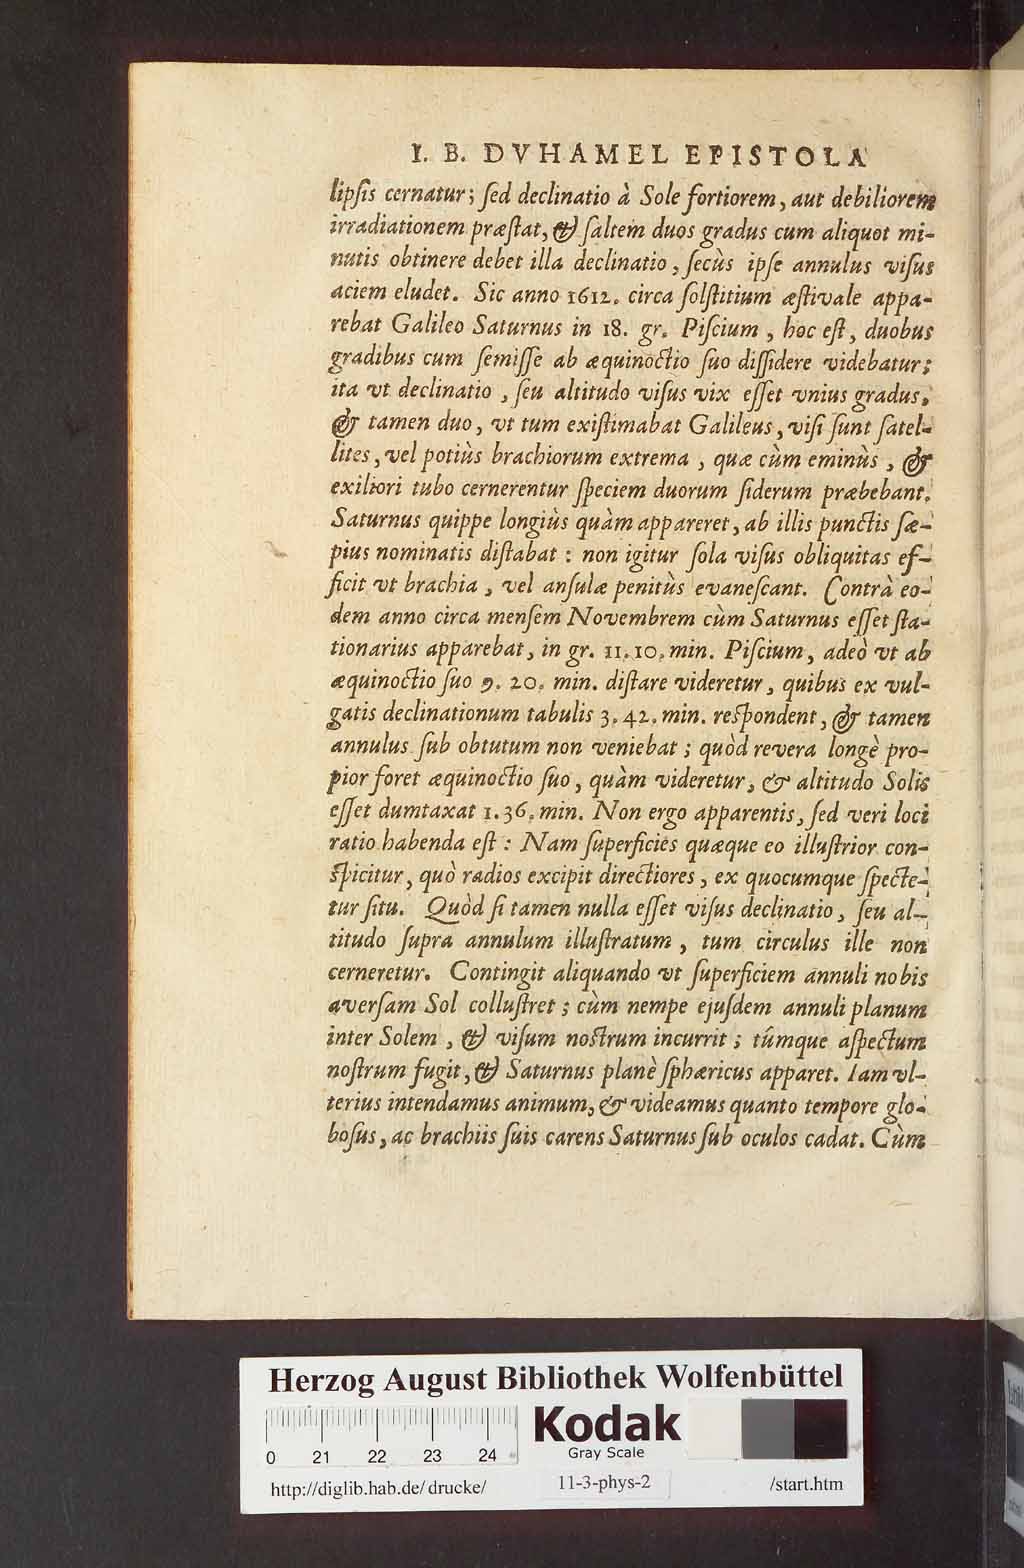 I. B. DVHAMEL EPISTOLA
lipſis cernatur; ſed declinatio à Sole fortiorem, aut debiliorem
irradiationem præſtat, & ſaltem duos gradus cum aliquot mi-
nutis obtinere debet illa declinatio, ſecùs ipſe annulus viſus
aciem eludet. Sic anno 1612. circa ſolſtitium æſtivale appa-
rebat Galileo Saturnus in 18. gr. Piſcium, hoc eſt, duobus
gradibus cum ſemiſſe ab æquinoctio ſuo diſſidere videbatur;
ita vt declinatio, ſeu altitudo viſus vix eſſet vnius gradus,
& tamen duo, vt tum exiſtimabat Galileus, viſi ſunt ſatel-
lites, vel potiùs brachiorum extrema, quæ cùm eminùs, &
exiliori tubo cernerentur ſpeciem duorum ſiderum præbebant.
Saturnus quippe longiùs quàm appareret, ab illis punctis ſæ-
pius nominatis diſtabat: non igitur ſola viſus obliquitas ef-
ficit vt brachia, vel anſulæ penitùs evaneſcant. Contrà eo-
dem anno circa menſem Novembrem cùm Saturnus eſſet ſta-
tionarius apparebat, in gr. 11. 10. min. Piſcium, adeò vt ab
æquinoctio ſuo 9. 20. min. diſtare videretur, quibus ex vul-
gatis declinationum tabulis 3. 42. min. reſpondent, & tamen
annulus ſub obtutum non veniebat; quòd revera longè pro-
pior foret æquinoctio ſuo, quàm videretur, & altitudo Solis
eſſet dumtaxat 1. 36. min. Non ergo apparentis, ſed veri loci
ratio habenda eſt: Nam ſuperficies quæque eo illuſtrior con-
ſpicitur, quò radios excipit directiores, ex quocumque ſpecte-
tur ſitu. Quòd ſi tamen nulla eſſet viſus declinatio, ſeu al-
titudo ſupra annulum illuſtratum, tum circulus ille non
cerneretur. Contingit aliquando vt ſuperficiem annuli nobis
averſam Sol colluſtret; cùm nempe ejuſdem annuli planum
inter Solem, & viſum noſtrum incurrit; túmque aſpectum
noſtrum fugit, & Saturnus planè ſphæricus apparet. Iam vl-
terius intendamus animum, & videamus quanto tempore glo-
boſus, ac brachiis ſuis carens Saturnus ſub oculos cadat. Cùm
Herzog August Bibliothek Wolfenbüttel
0 21 22 23 24
Kodak
Gray Scale
http://diglib.hab.de/drucke/ 11-3-phys-2 /start.htm